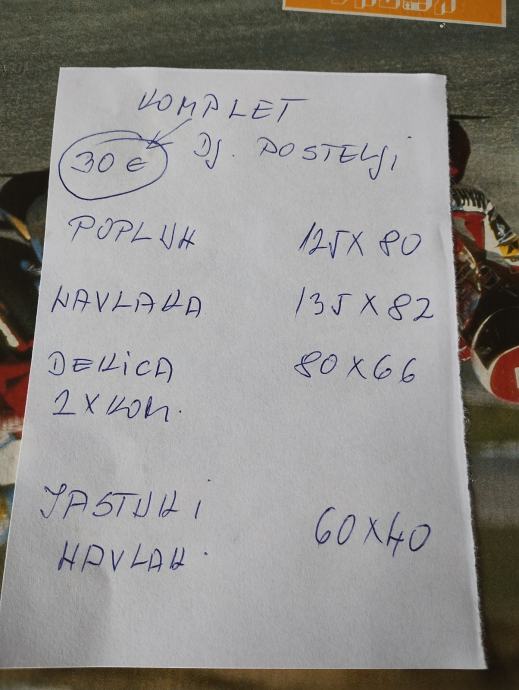 KOMPLET
30 € DJ. POSTELJI
POPLUH 125 X 80
NAVLAKA 135 X 82
DEKICA 80 X 66
2 X KOM.
JASTUK I 60 X 40
NAVLAK.